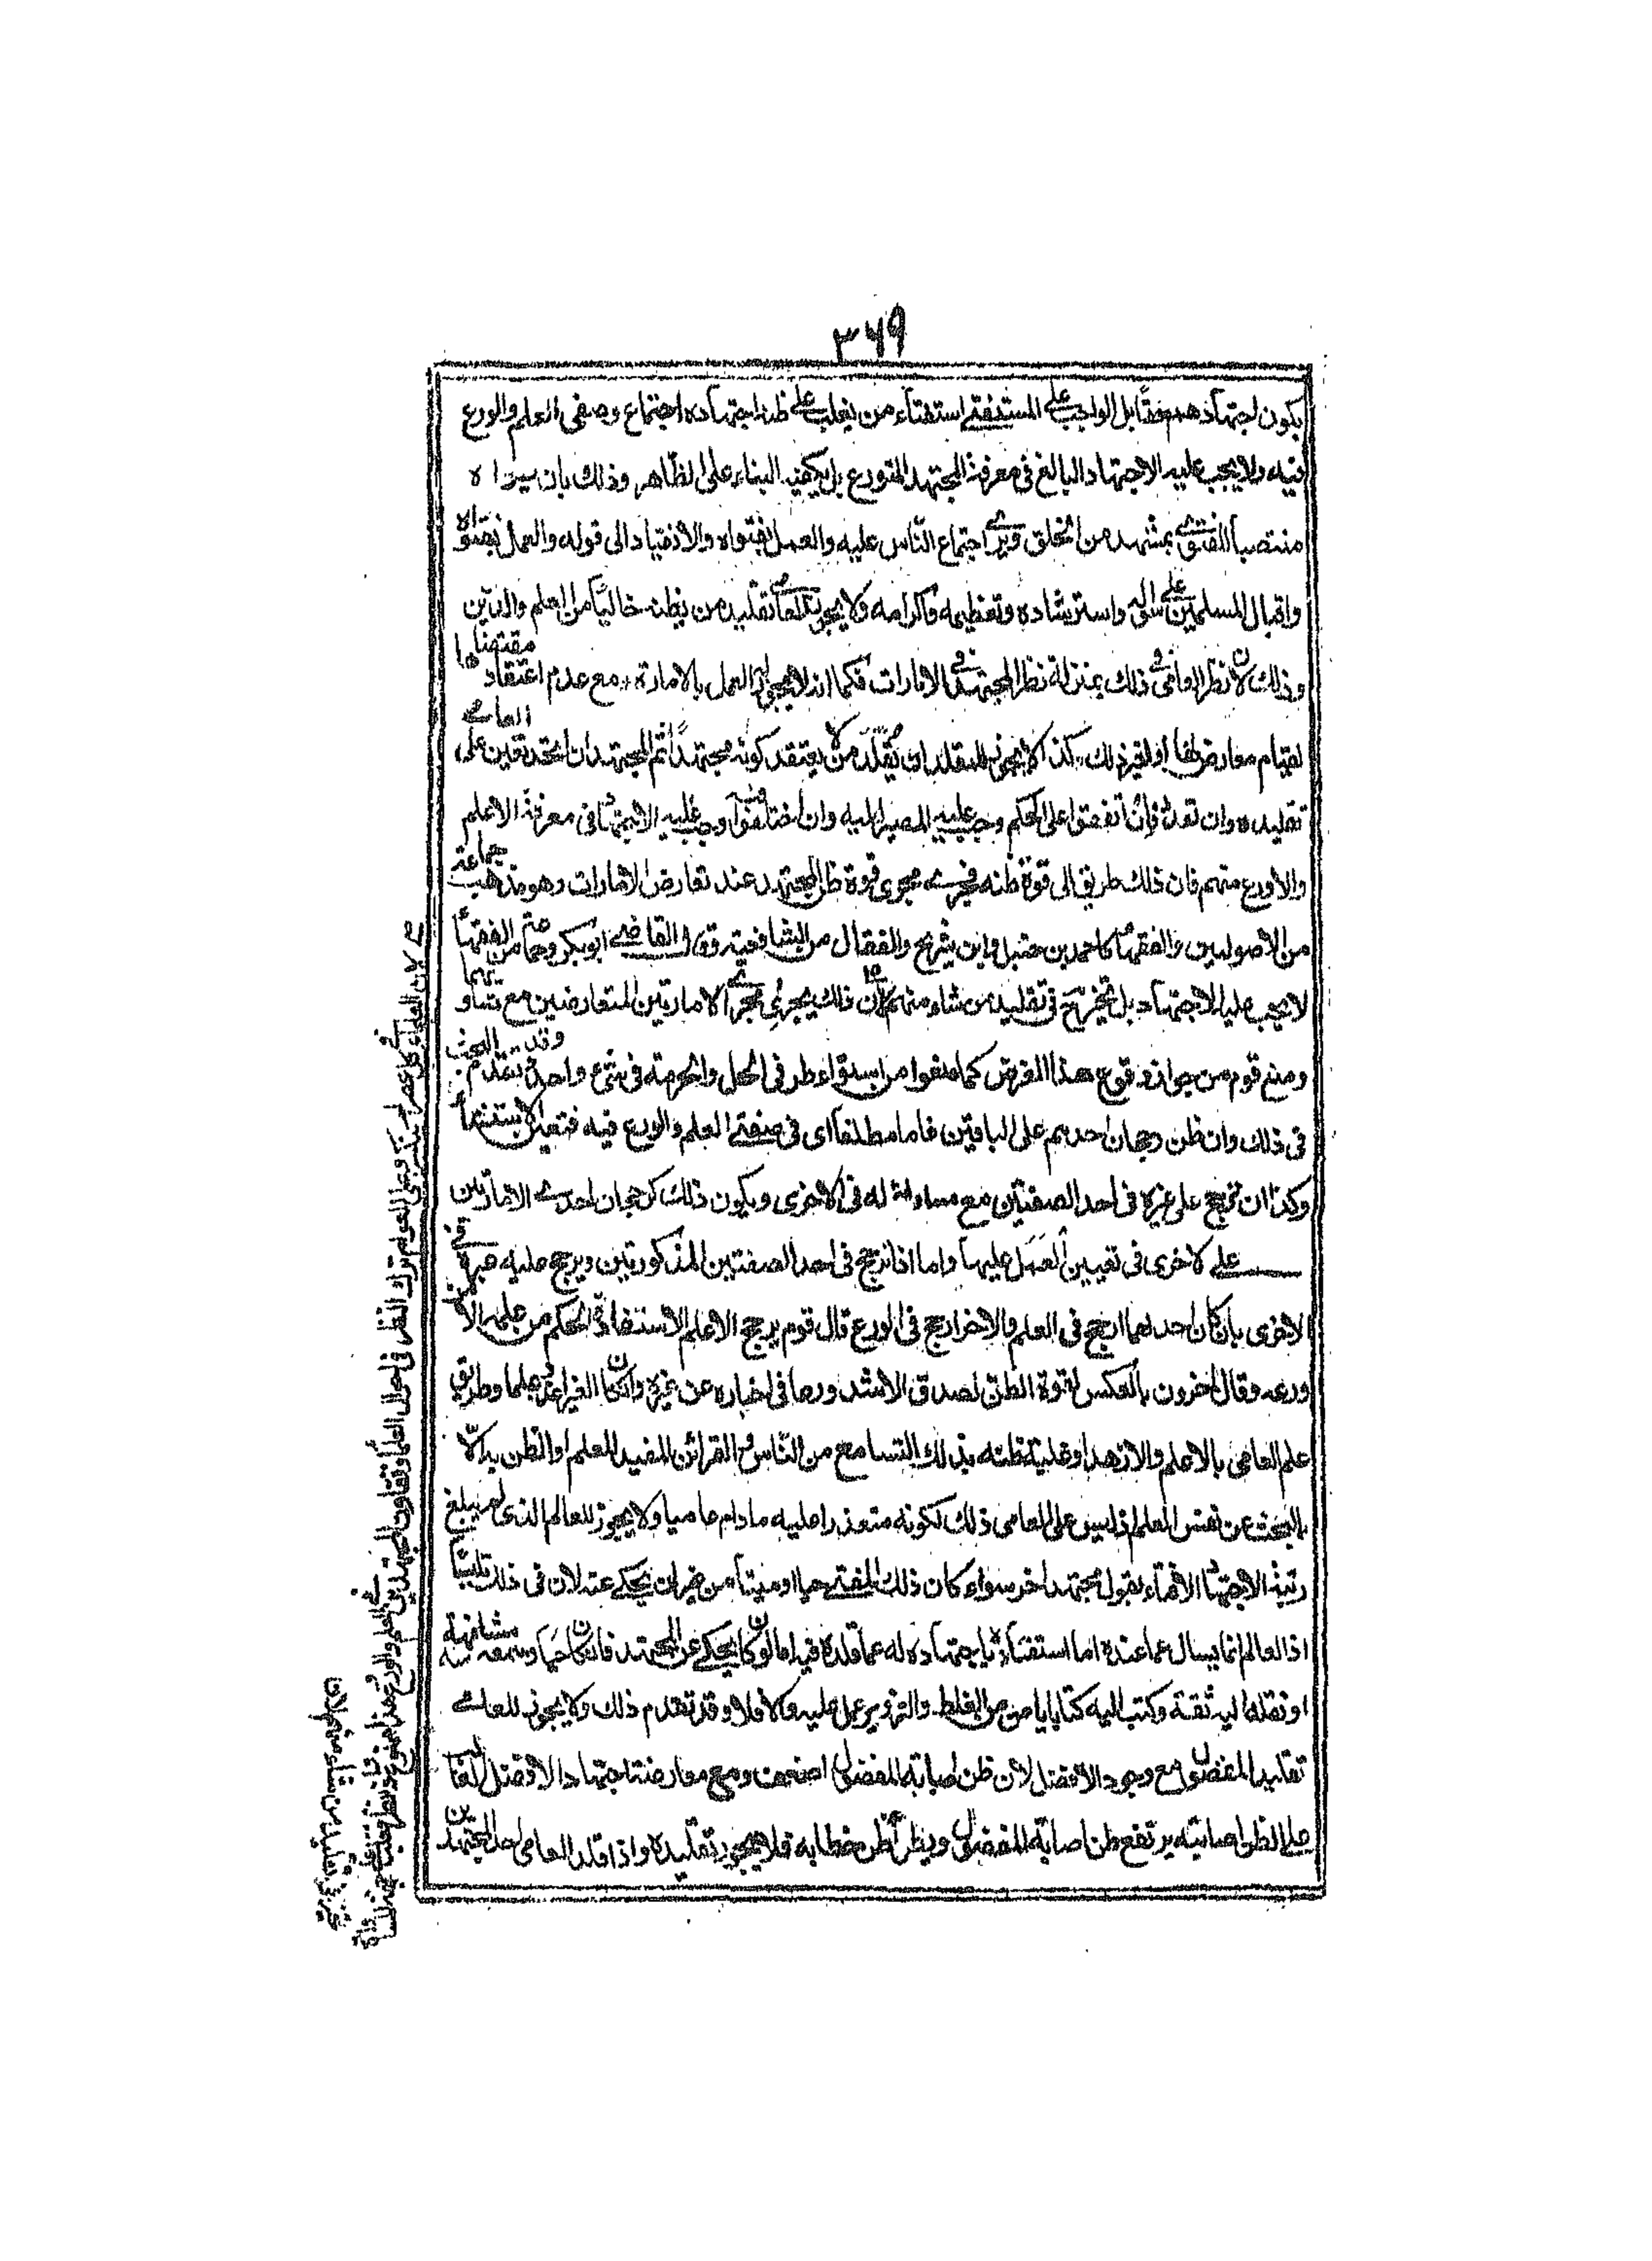 ٣٦٩
يكون اجتهادهم حقا بل الواجب على المستفتي استفتاء من يغلب على ظنه اجتهاده اجتماع وصفى العلم والورع
فيه ولا يجب عليه الاجتهاد البالغ فى معرفة المجتهد المتورع بل يكفيه البناء على الظاهر وذلك بان يراه
منتصبا للفتوى بمشهد من الخلق ويرى اجتماع الناس عليه والعمل بفتواه والانقياد الى قوله والعمل بفتواه
واقبال المسلمين على سؤاله واسترشاده وتعظيمه واكرامه ولا يجوز للعامى تقليد من يظنه خاليا من العلم والدين
وذلك لان نظر العامى فى ذلك بمنزلة نظر المجتهد فى الامارات فكما انه لا يجوز له العمل بالامارة مع عدم اعتقاد مقتضاها
لقيام معارض لها او لغير ذلك كذا لا يجوز للمقلد ان يقلد من لا يعتقد كونه مجتهدا ثم المجتهد ان اتحد تعين على العامي
تقليده وان تعدد فان اتفقوا على الحكم وجب عليه المصير اليه وان اختلفوا فيه وجب عليه الاجتهاد فى معرفة الاعلم
والاورع منهم فان ذلك طريق الى قوة ظنه فيجرى مجرى قوة ظن المجتهد عند تعارض الامارات وهو مذهب جماعة
من الاصوليين والفقهاء كاحمد بن حنبل وابن شريح والقفال من الشافعية وقال القاضي ابو بكر وجماعة من الفقهاء
لا يجب عليه الاجتهاد بل يتخير فى تقليد من شاء منهم لان ذلك يجرى مجرى الامارتين المتعارضتين مع تساويهما
ومنع قوم من جواز وقوع هذا الفرض كما منعوا من استواء طرفى الحل والحرمة فى شئ واحد وقد تقدم البحث
فى ذلك وان ظن رجحان احدهم على الباقين فاما مطلقا اى فى صفتي العلم والورع فيه فتعين الاستفتاء
وكذا ان ترجح على غيره فى احد الصفتين مع مساواته له فى الاخرى ويكون ذلك كرجحان احدى الامارتين
على الاخرى فى تعيين العمل عليها واما اذا ترجح فى احد الصفتين المذكورتين ويرجح عليه غيره في
الاخرى بان كان احدهما ارجح فى العلم والاخر ارجح فى الورع قال قوم يرجح الاعلم لاستفادة الحكم من علمه لا من
ورعه وقال اخرون بالعكس لقوة الظن لصدق الاشد ورعا فى اخباره عن غيره وان كان الغير اغزر علما وطريق
علم العامى بالاعلم والازهد او غلبة ظنه بذلك التسامع من الناس والقرائن المفيد للعلم او الظن بذلك لا
بالبحث عن نفس العلم اذ ليس على العامى ذلك لكونه متعذرا عليه ما دام عاميا ولا يجوز للعالم الذى لم يبلغ
رتبة الاجتهاد الافتاء بقول مجتهد اخر سواء كان ذلك المفتي حيا او ميتا من غير ان يحكي عنه لان فى ذلك تلبيسا
اذ العالم انما يسال عما عنده اما استفتاءه باجتهاده له عما قلده فيه اما لو كان يحكي عن المجتهد فان كان حيا وسمعه منه مشافهة
او نقله اليه ثقة او كتب اليه كتابا يامن من الغلط والتزوير عمل عليه والا فلا وقد تقدم ذلك ولا يجوز للعامي
تقليد المفضول مع وجود الافضل لان ظن اصابة المفضول اضعف ومع معارضة اجتهاد الافضل الغالب
على الظن اصابته يرتفع ظن اصابة المفضول ويظن خطابه فلا يجوز تقليده واذا قلد العامى احد المجتهدين